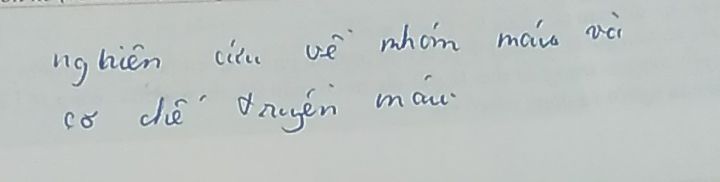 nghiên cứu về nhóm máu và
cơ chế truyền máu.